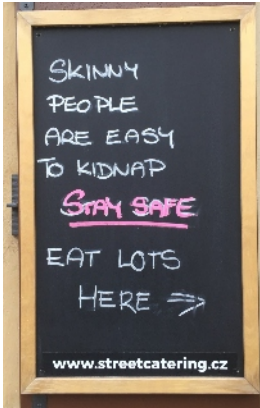 SKINNY
PEOPLE
ARE EASY
TO KIDNAP
STAY SAFE
EAT LOTS
HERE ⇒
www.streetcatering.cz